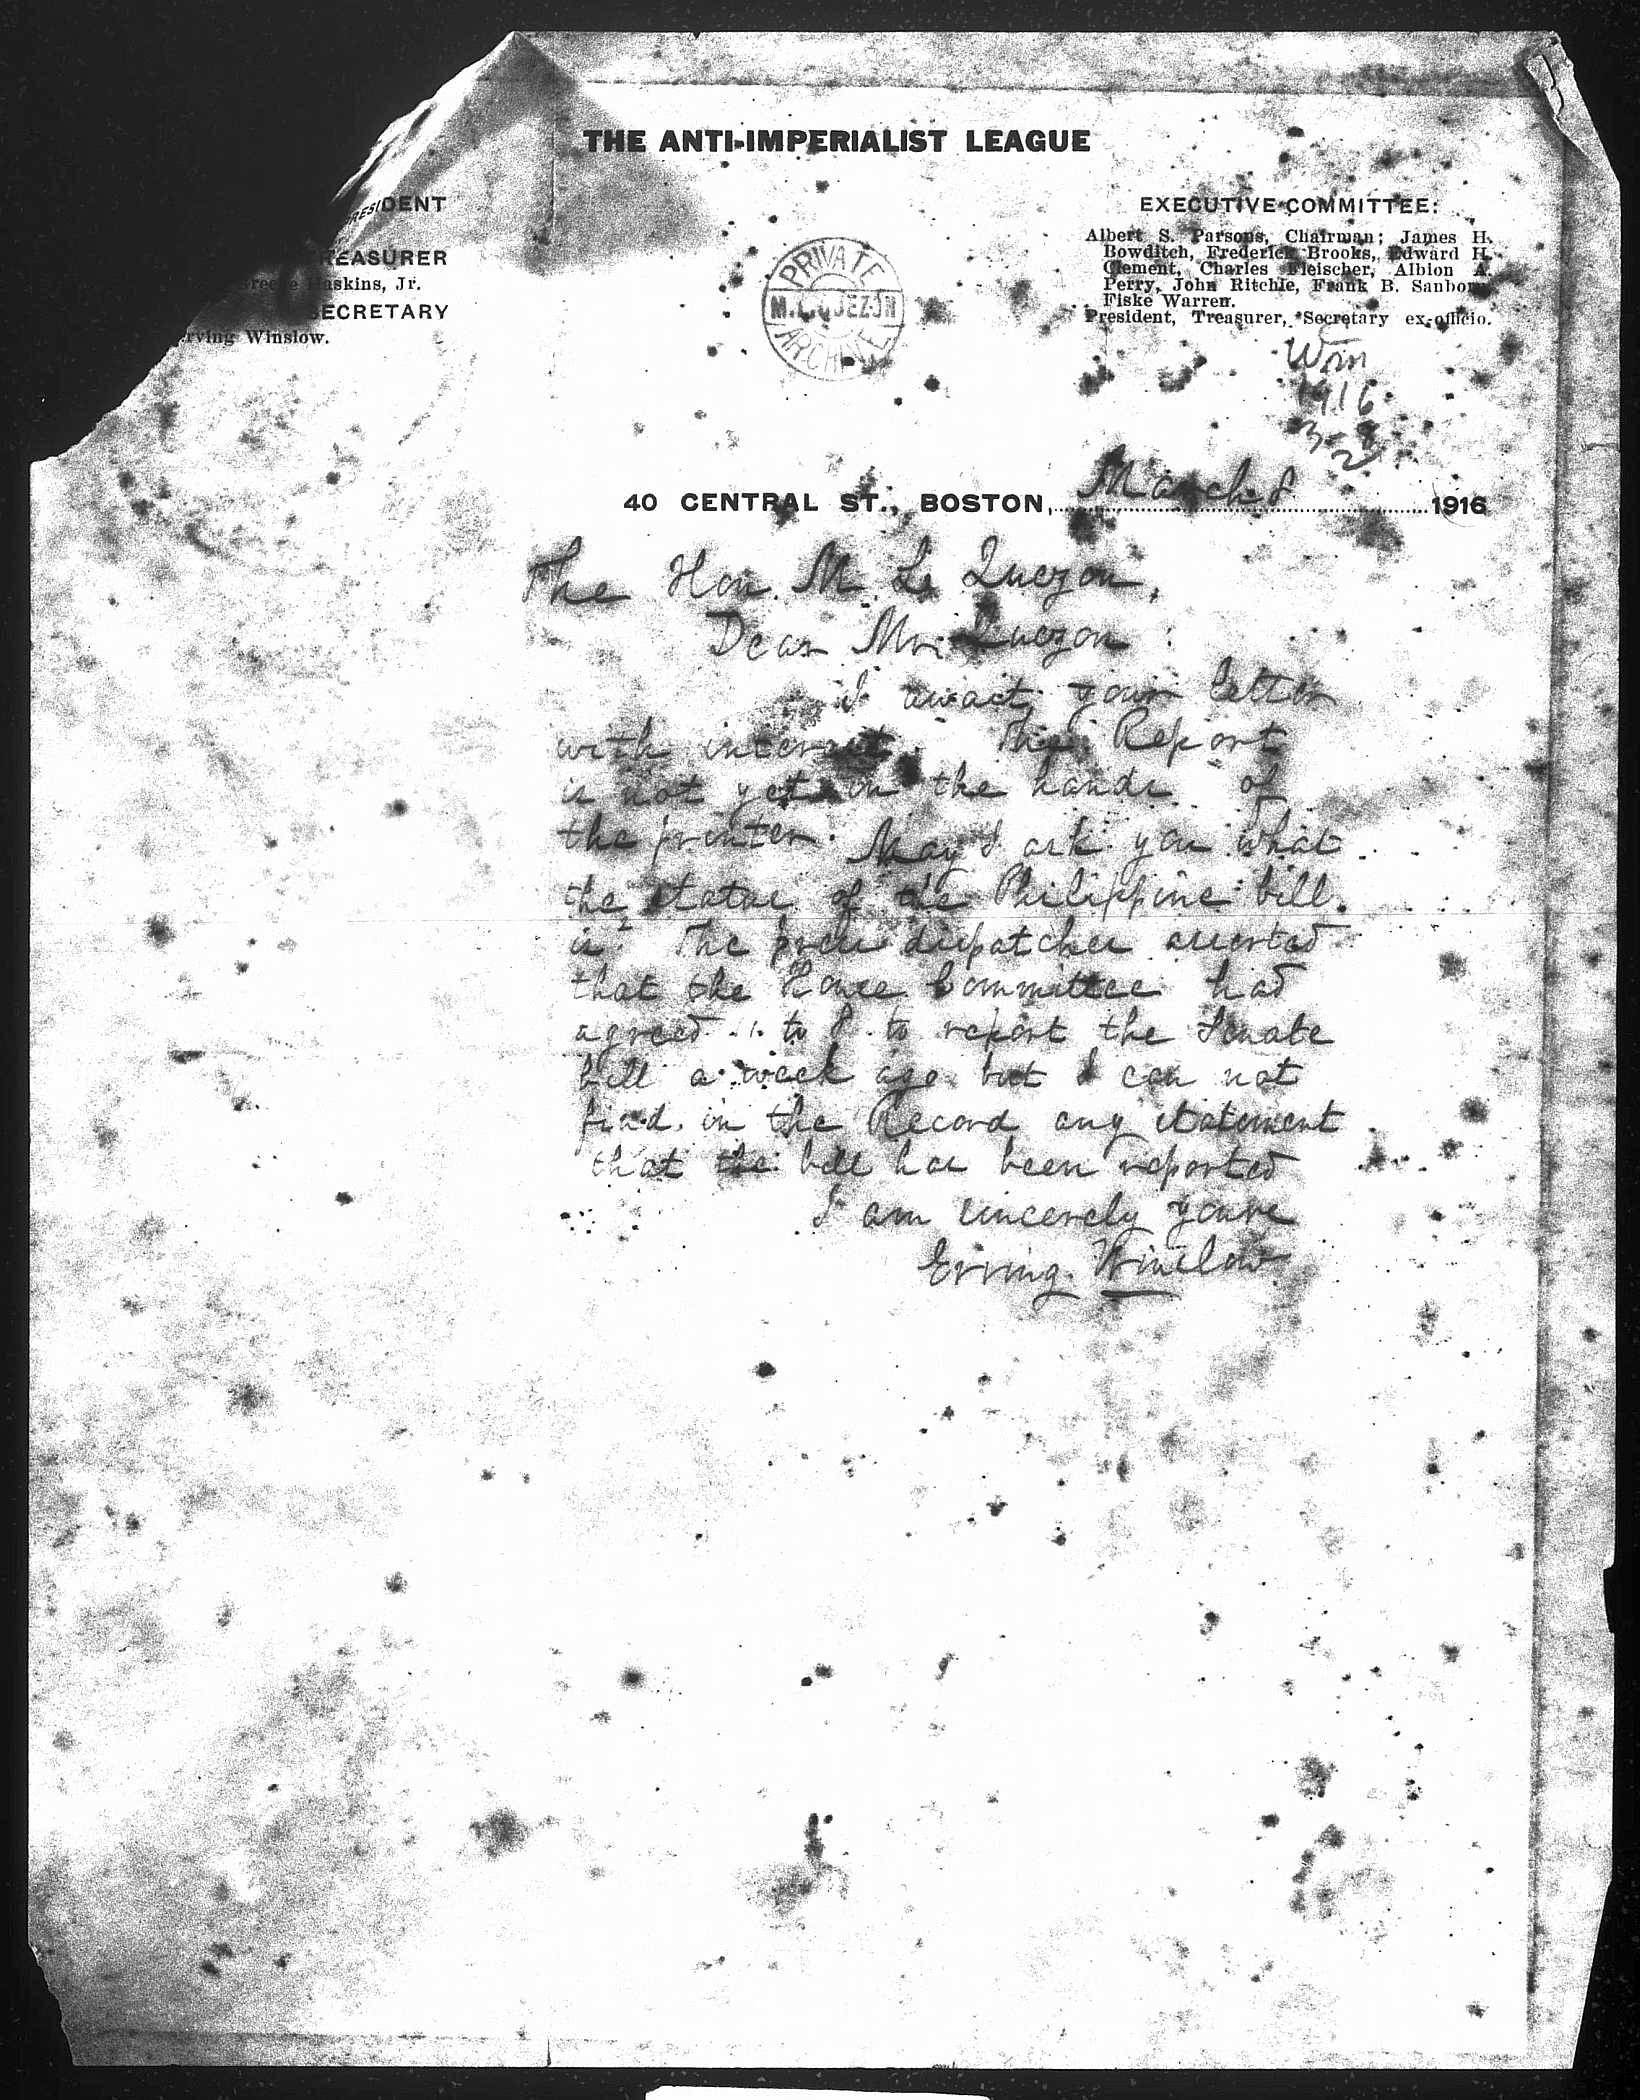 THE ANTI-IMPERIALIST LEAGUE
PRESIDENT
TREASURER
Haskins, Jr.
SECRETARY
Erving Winslow.
PRIVATE
M.L.QUEZON
ARCHIVE
EXECUTIVE COMMITTEE:
Albert S. Parsons, Chairman; James H.
Bowditch, Frederick Brooks, Edward H.
Clement, Charles Fleischer, Albion A.
Perry, John Ritchie, Frank B. Sanborn,
Fiske Warren.
President, Treasurer, Secretary ex-officio.
Win
1916
3-8
2
40 CENTRAL ST., BOSTON, March 8 1916
The Hon. M. L. Quezon,
Dear Mr. Quezon:
I await your letter
with interest. The Report
is not yet in the hands of
the printer. May I ask you what
the status of the Philippine bill
is? The press dispatches asserted
that the House Committee had
agreed to to report the Senate
bill a week ago but I can not
find in the Record any statement
that the bill has been reported
I am sincerely yours
Erving Winslow